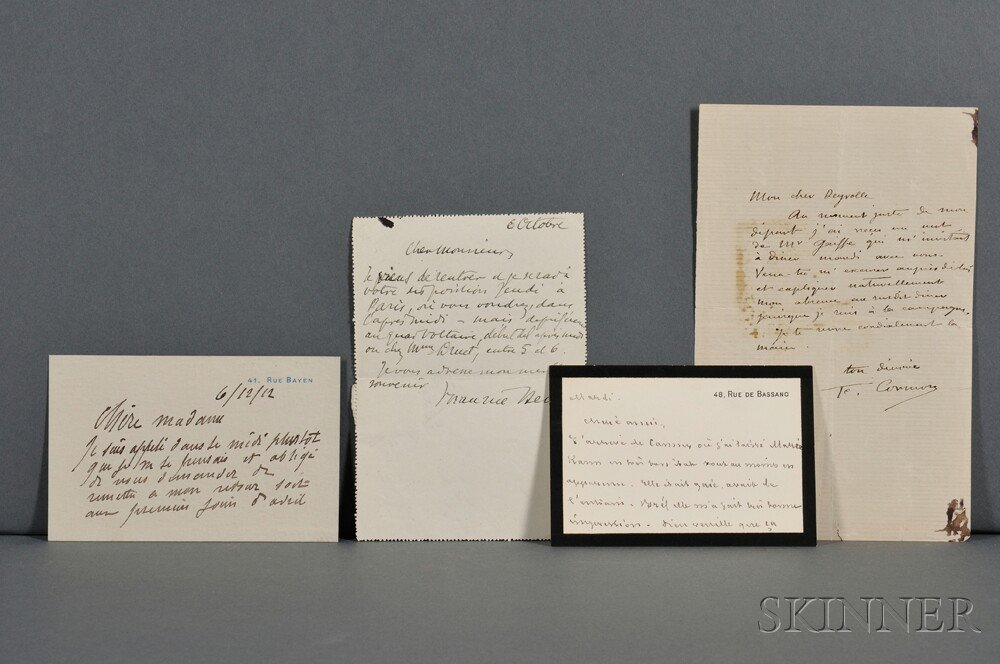 41. RUE BAYEN
6/12/12
Chère madame
Je suis appelé dans le midi plustot
que je ne le pensais et obligé
de vous demander de
remettre à mon retour soit
aux premiers jours d'avril
Octobre
Cher Monsieur,
Je viens de rentrer et je serai à
votre disposition Jeudi à
Paris, où vous voudrez, dans
l'après midi – mais
au quai Voltaire, début de l'après midi
ou chez Druet, entre 5 et 6.
Je vous adresse mon
souvenir
Maurice
48, RUE DE BASSANO
Mardi.
Chère amie,
J'arrive de Cannes où j'ai laissé
Kann en très bon état tout au moins en
apparence. Elle était gaie, avait de
l'entrain. Bref elle m'a fait très bonne
impression. Dieu veuille que ça
Mon cher Deyrolle
Au moment juste de mon
départ j'ai reçu un mot
de Mr Gouffe qui m'invitait
à diner mardi avec vous.
Veux-tu m'excuser auprès de lui
et expliquer naturellement
mon absence au susdit diner
puisque je suis à la campagne.
Je te serre cordialement la
main.
ton dévoué
F. Cormon
SKINNER